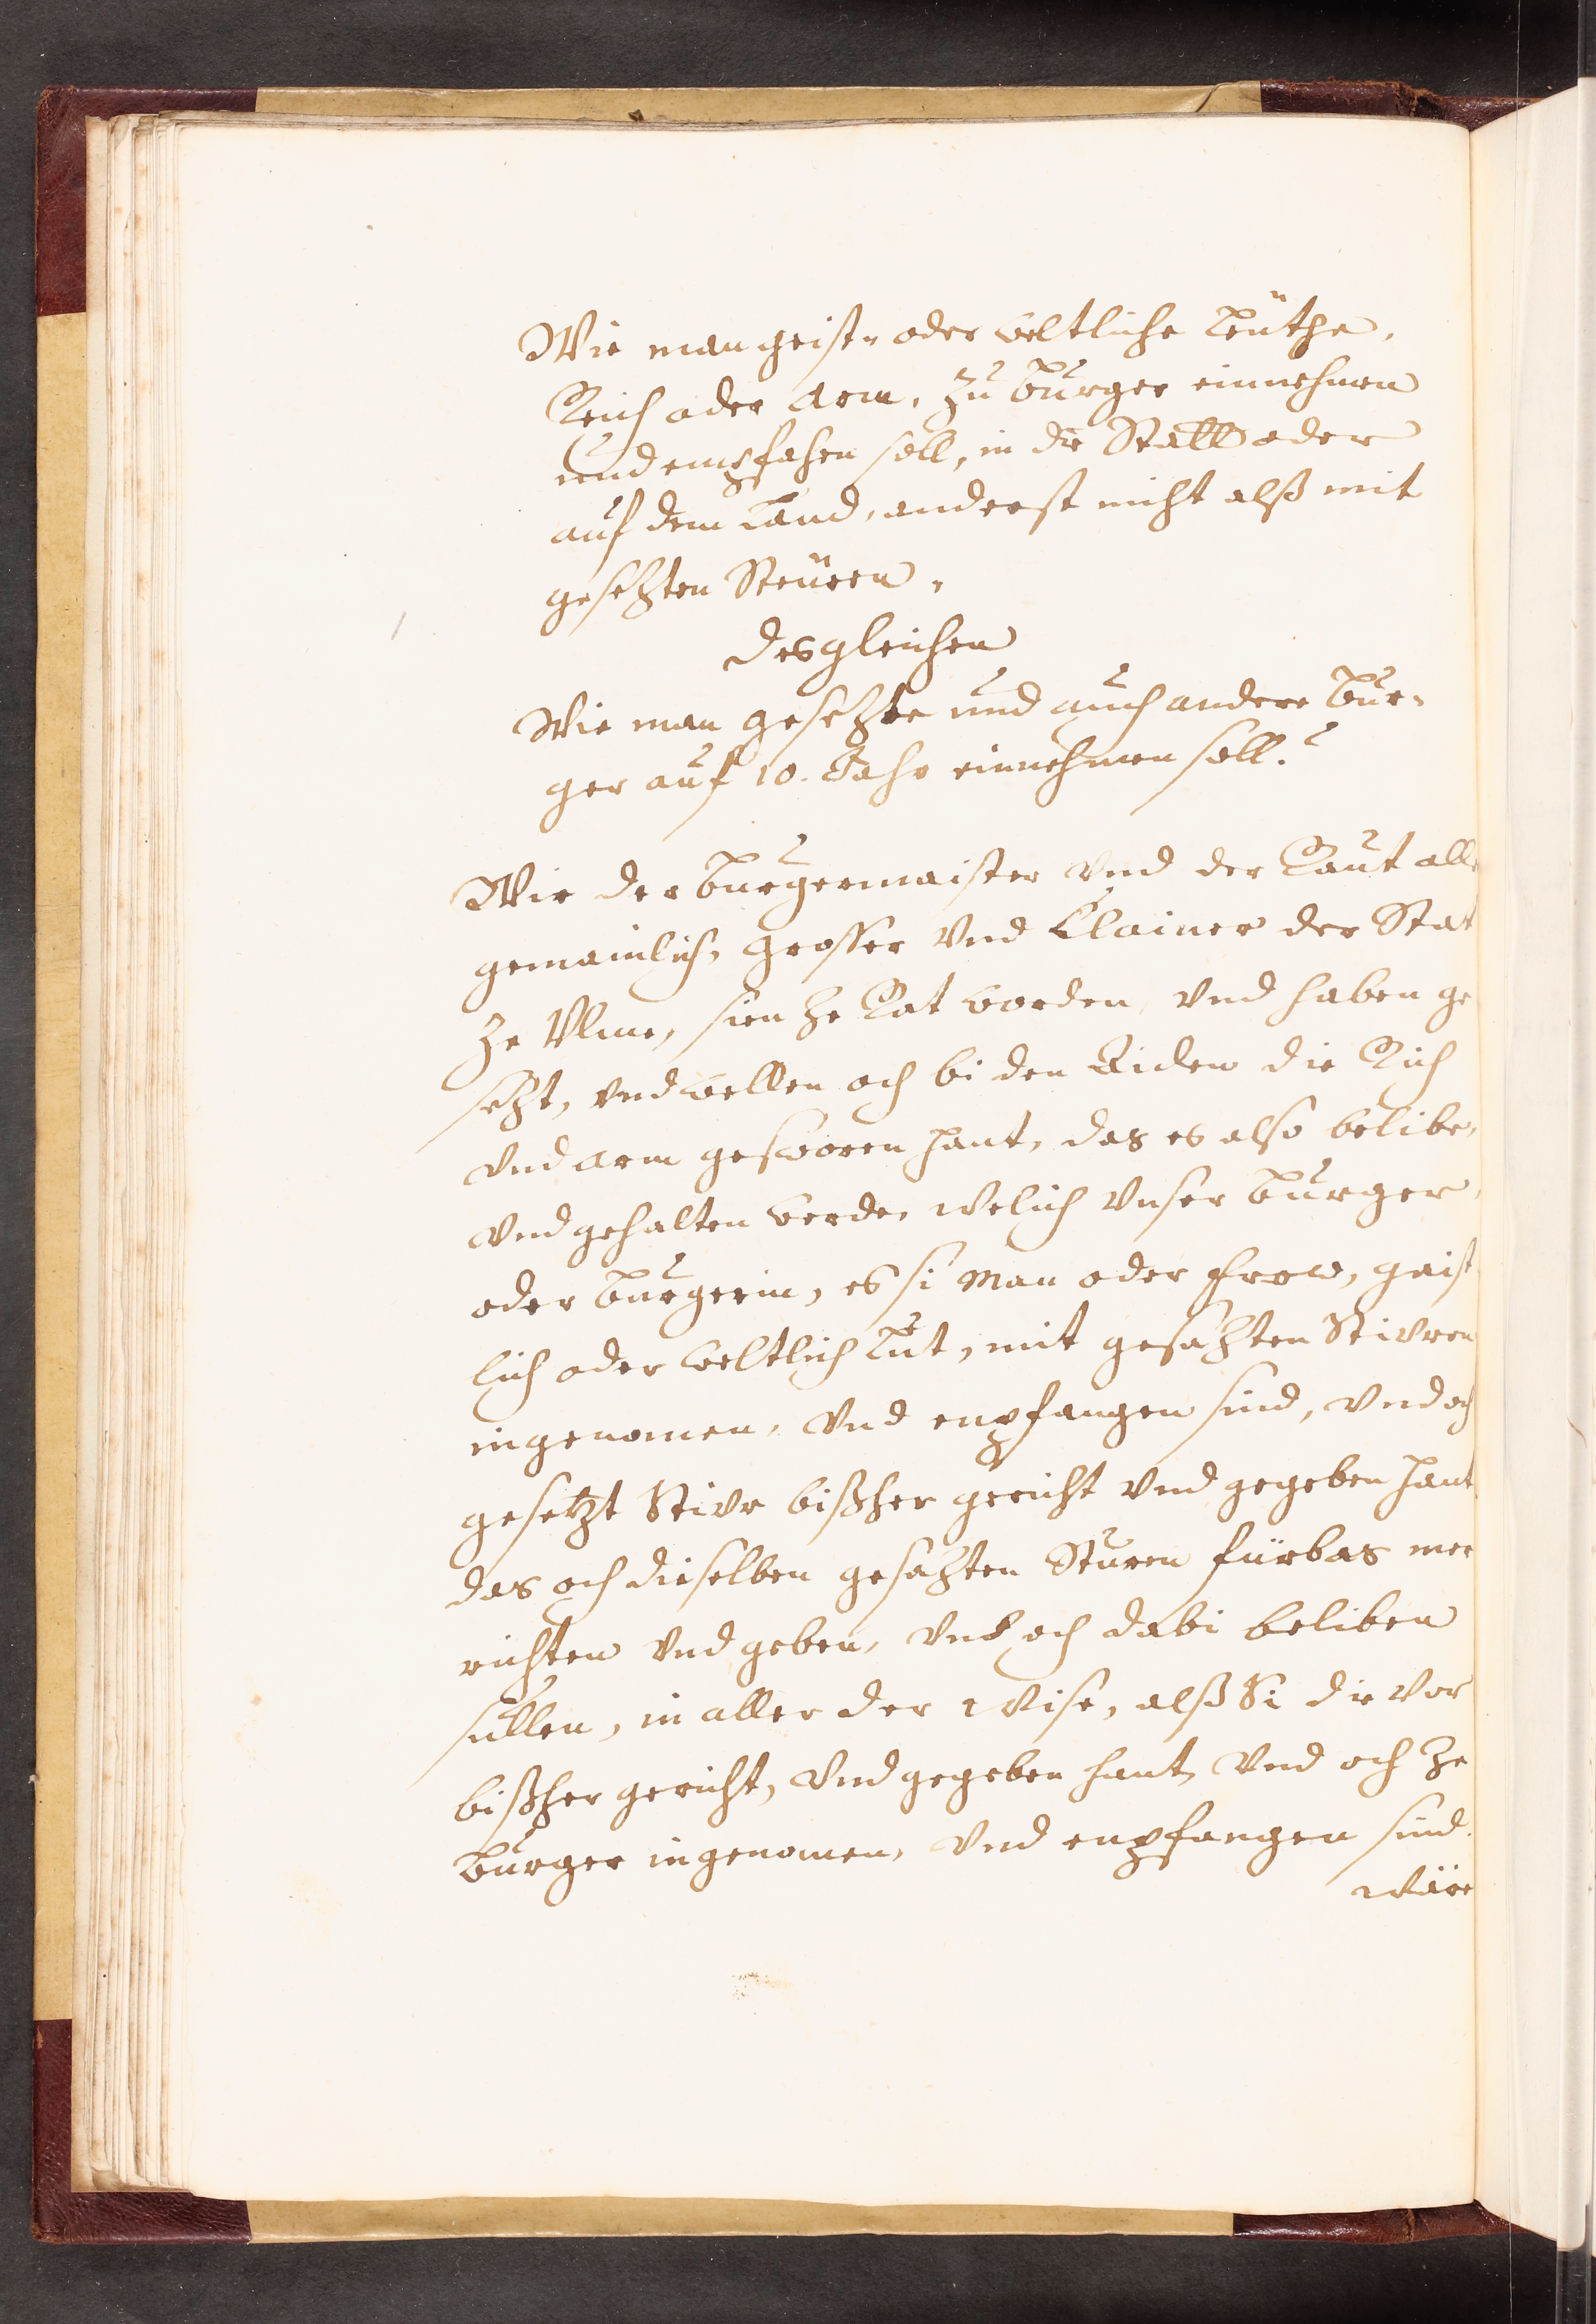 Wie man geist- oder weltliche Leüthe,
Reich oder Arm, zu burger einnehmen
und empfahen soll, in die Statt oder
auf dem Land, anderst nicht alß mit
gesetzten Steüren.
Desgleichen
Wie man gesetzte und auch andere bur-
ger auf 10. Jahr einnehmen soll.
Wir der burgermaister vnd der Raut alle
gemainlich, grosser vnd klainer der Stat
ze Vlme, sien ze Rat worden, vnd haben ge
setzt, vnd wellen och bi den Eiden die Rich
vnd arm gesworen hant, das es also belibe,
vnd gehalten werde, welich vnser burger,
oder burgerin, es si Man oder frow, gaist
lich oder weltlich Lüt, mit gesazten Stivren
ingenomen, vnd enpfangen sind, vnd och
gesetzt Stivr bißher gericht vnd gegeben hant
das och dieselben gesazten Sturen fürbas mer
richten vnd geben, vnd och dabi beliben
sullen, in aller der Wise, alß Si die vor
bißher gericht, vnd gegeben hant, vnd och ze
burger ingenomen, vnd enpfangen sind.
Wäre